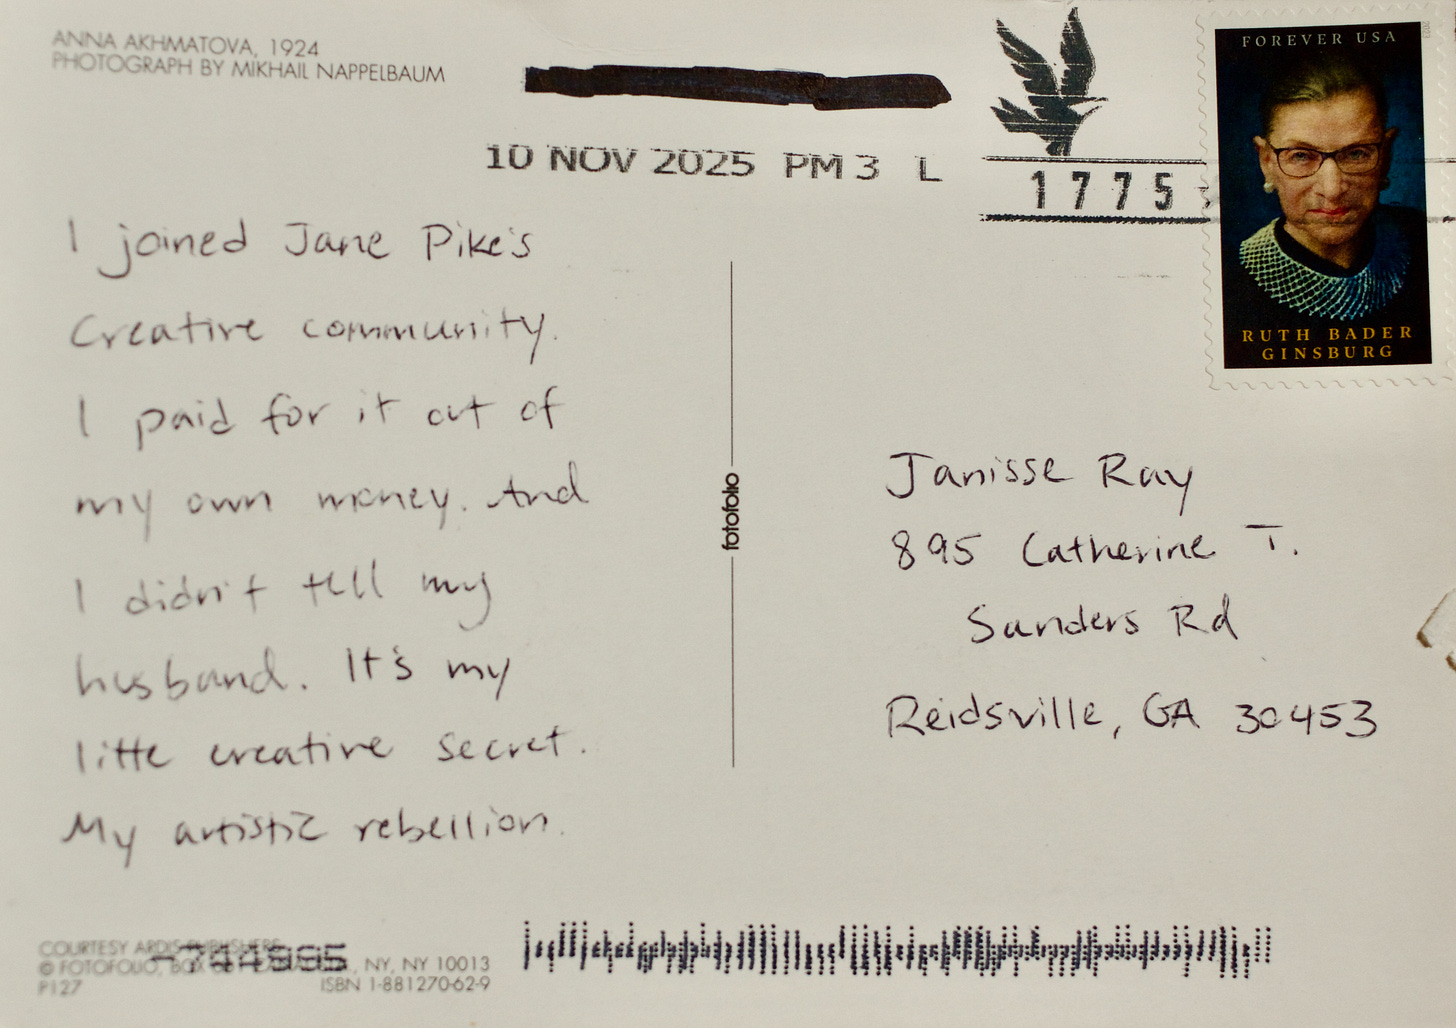 ANNA AKHMATOVA, 1924
PHOTOGRAPH BY MIKHAIL NAPPELBAUM
10 NOV 2025 PM 3 L
1775
FOREVER USA
RUTH BADER
GINSBURG
I joined Jane Pike's
Creative community.
I paid for it out of
my own money. And
I didn't tell my
husband. It's my
little creative secret.
My artistic rebellion.
fotofolio
Janisse Ray
895 Catherine T.
Sanders Rd
Reidsville, GA 30453
COURTESY ARDIS PUBLISHERS
© FOTOFOLIO, BOX , NY, NY 10013
P127
ISBN 1-881270-62-9